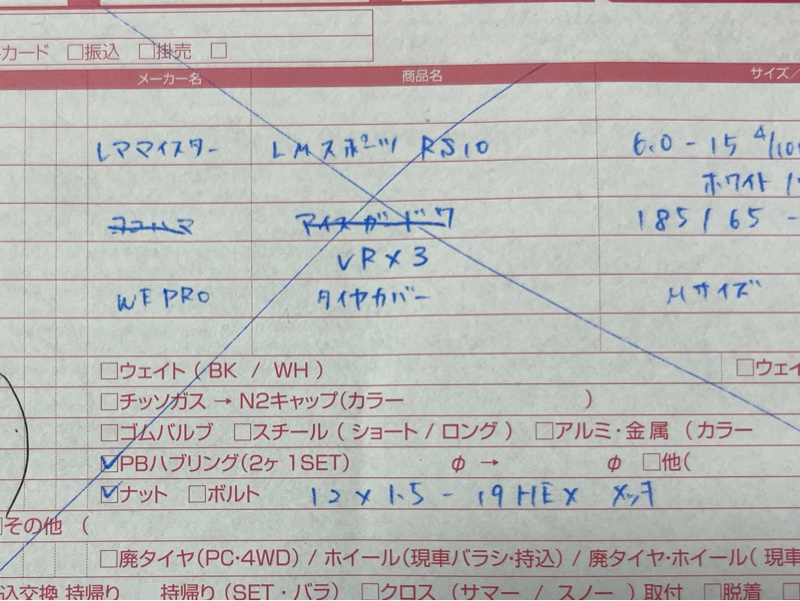 カード □振込 □掛売 □
メーカー名 商品名 サイズ/
レアマイスター LMスポーツ RS10 6.0-15 4/100
ホワイト
ヨコハマ アイスガード7 185/65-
VRX3
WEPRO タイヤカバー Mサイズ
□ウェイト(BK / WH) □ウェイ
□チッソガス → N2キャップ(カラー )
□ゴムバルブ □スチール(ショート/ロング) □アルミ・金属(カラー
☑PBハブリング(2ヶ1SET) φ → φ □他(
☑ナット □ボルト 12×1.5-19HEX メッキ
□その他(
□廃タイヤ(PC・4WD) / ホイール(現車バラシ・持込) / 廃タイヤ・ホイール(現車
込交換 持帰り 持帰り(SET・バラ) □クロス(サマー / スノー)取付 □脱着 □